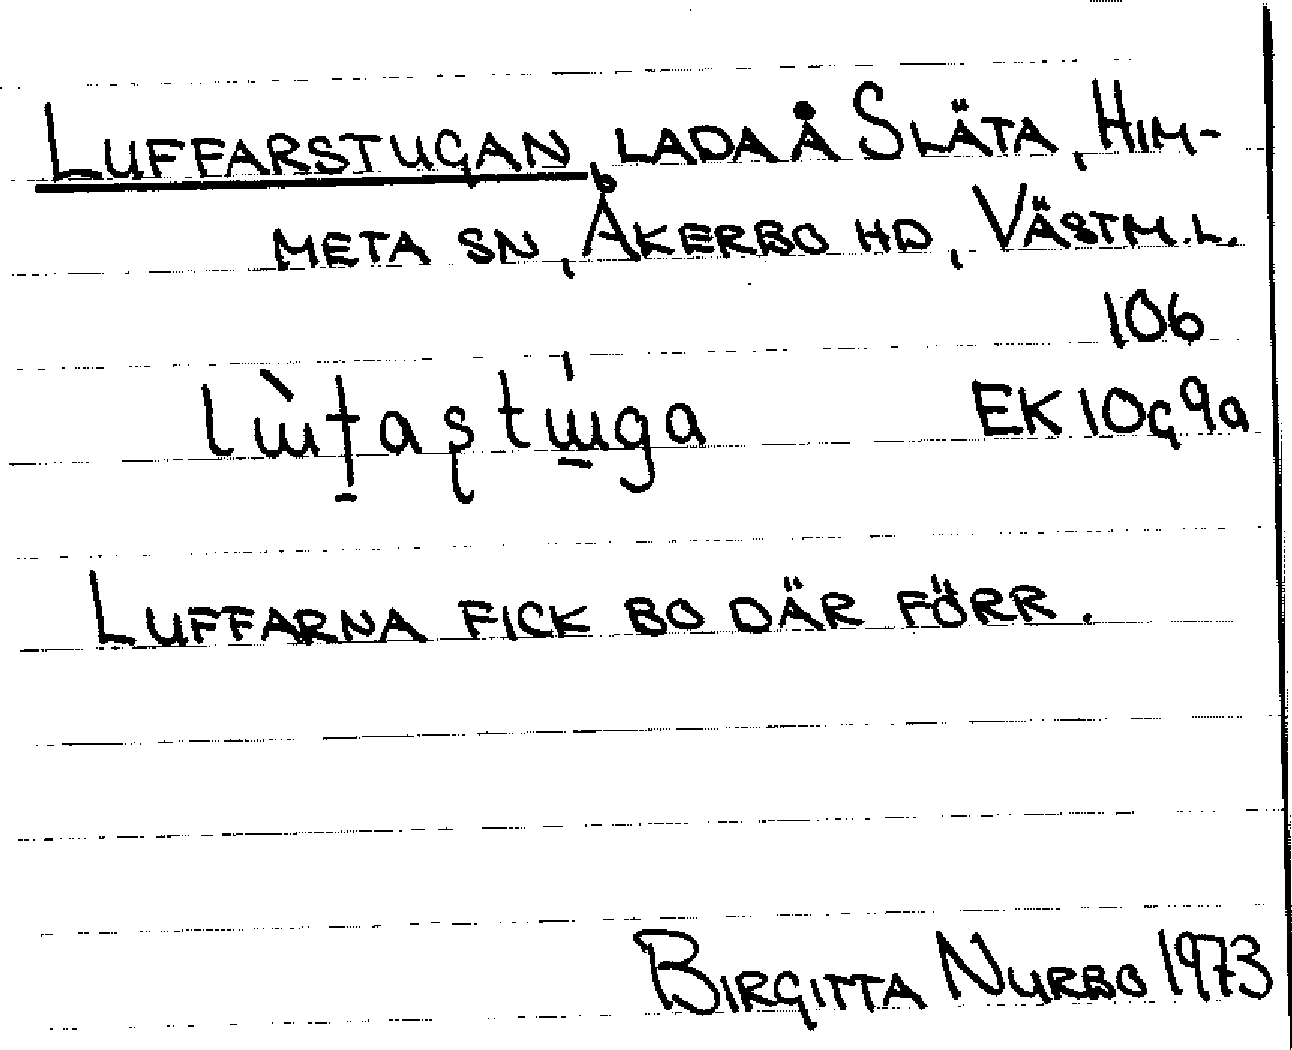 LUFFARSTUGAN, LADA Å SLÄTA, HIM-
META SN, ÅKERBO HD, VÄSTM.L.
106
EK 10g9a
LUFFARNA FICK BO DÄR FÖRR.
BIRGITTA NURBO 1973